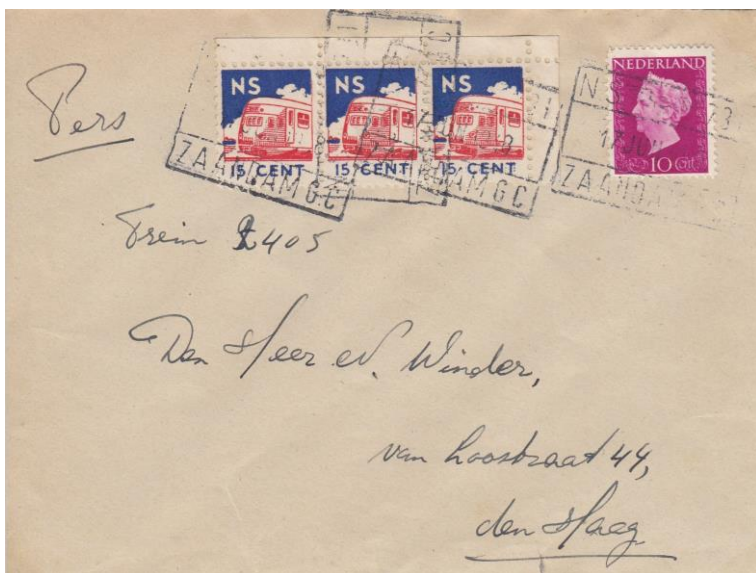 Pers
NS NS NS
15 CENT 15 CENT 15 CENT
NEDERLAND
10 CT
ZAANDAM G.C
Trein 2405
Den Heer N. Winder,
van Loostraat 44,
den Haag